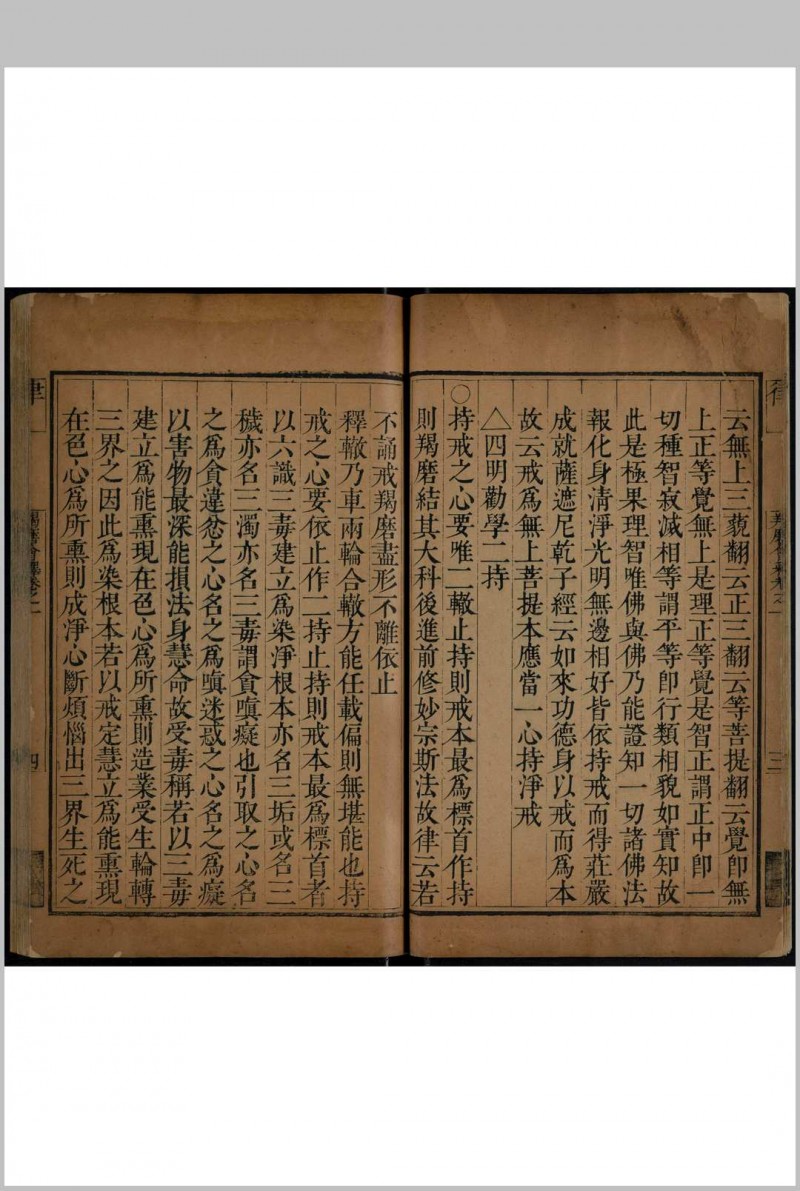 云無上三藐翻云正三翻云等菩提翻云覺即無
上正等覺無上是理正等覺是智正謂正中即一
切種智寂滅相等謂平等即行類相貌如實知故
此是極果理智唯佛與佛乃能證知一切諸佛法
報化身清淨光明無邊相好皆依持戒而得莊嚴
成就薩遮尼乾子經云如來功德身以戒而為本
故云戒為無上菩提本應當一心持淨戒
△四明勸學二持
○持戒之心要唯二轍止持則戒本最為標首作持
則羯磨結其大科後進前修妙宗斯法故律云若
三
不誦戒羯磨盡形不離依止
釋轍乃車兩輪合轍方能任載偏則無堪能也持
戒之心要依止作二持止持則戒本最為標首者
以六識三毒建立為染淨根本亦名三垢或名三
穢亦名三濁亦名三毒謂貪嗔癡也引取之心名
之為貪違忿之心名之為嗔迷惑之心名之為癡
以害物最深能損法身慧命故受毒稱若以三毒
建立為能熏現在色心為所熏則造業受生輪轉
三界之因此為染根本若以戒定慧立為能熏現
在色心為所熏則成淨心斷煩惱出三界生死之
律一
四